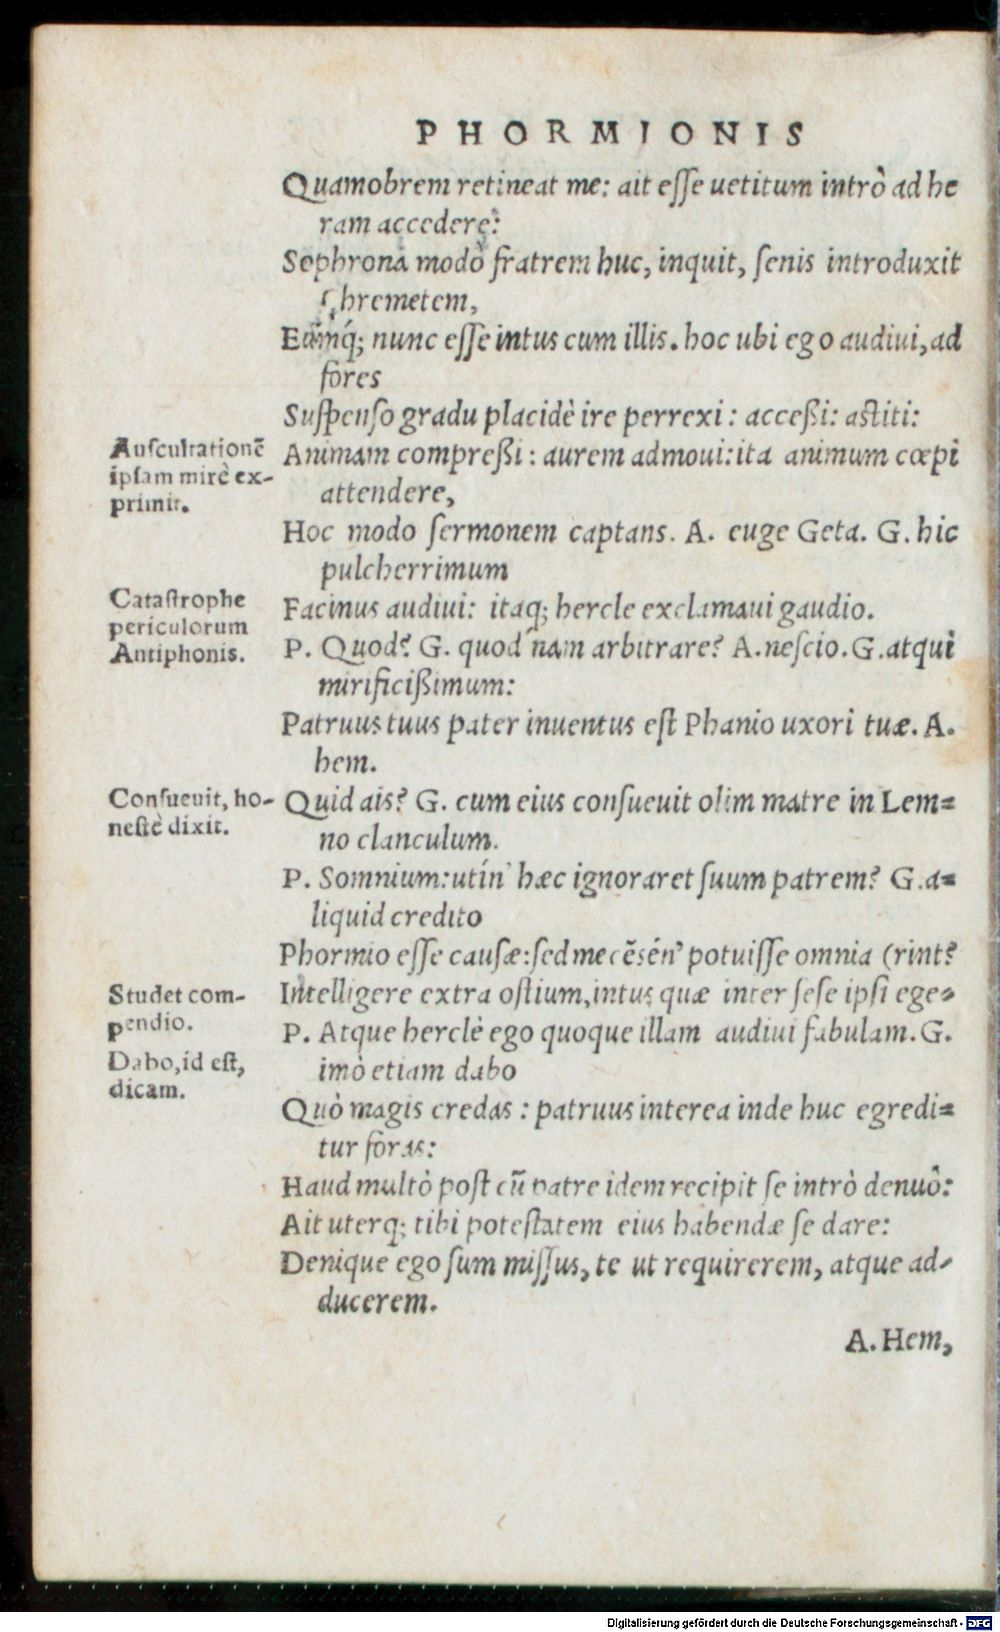 PHORMIONIS
Quamobrem retineat me: ait eſſe uetitum intrò ad he
ram accedere:
Sophrona modò fratrem huc, inquit, ſenis introduxit
Chremetem,
Eumq́; nunc eſſe intus cum illis. hoc ubi ego audiui, ad
fores
Suſpenſo gradu placidè ire perrexi: acceßi: aſtiti:
Auſcultationẽ
ipſam mirè ex-
primit.
Animam compreßi: aurem admoui: ita animum cœpi
attendere,
Hoc modo ſermonem captans. A. euge Geta. G. hic
pulcherrimum
Cataſtrophe
periculorum
Antiphonis.
Facinus audiui: itaq; hercle exclamaui gaudio.
P. Quod? G. quod nam arbitrare? A. neſcio. G. atqui
mirificißimum:
Patruus tuus pater inuentus eſt Phanio uxori tuæ. A.
hem.
Conſueuit, ho-
neſtè dixit.
Quid ais? G. cum eius conſueuit olim matre in Lem=
no clanculum.
P. Somnium: utín' hæc ignoraret ſuum patrem? G. a=
liquid credito
Phormio eſſe cauſæ: ſed me cẽsén' potuiſſe omnia (rint?
Studet com-
pendio.
Intelligere extra oſtium, intus quæ inter ſeſe ipſi ege-
P. Atque herclè ego quoque illam audiui fabulam. G.
imò etiam dabo
Dabo, id eſt,
dicam.
Quò magis credas: patruus interea inde huc egredi=
tur foras:
Haud multò poſt cũ patre idem recipit ſe intrò denuò:
Ait uterq; tibi poteſtatem eius habendæ ſe dare:
Denique ego ſum miſſus, te ut requirerem, atque ad-
ducerem.
A. Hem,
Digitalisierung gefördert durch die Deutsche Forschungsgemeinschaft - DFG